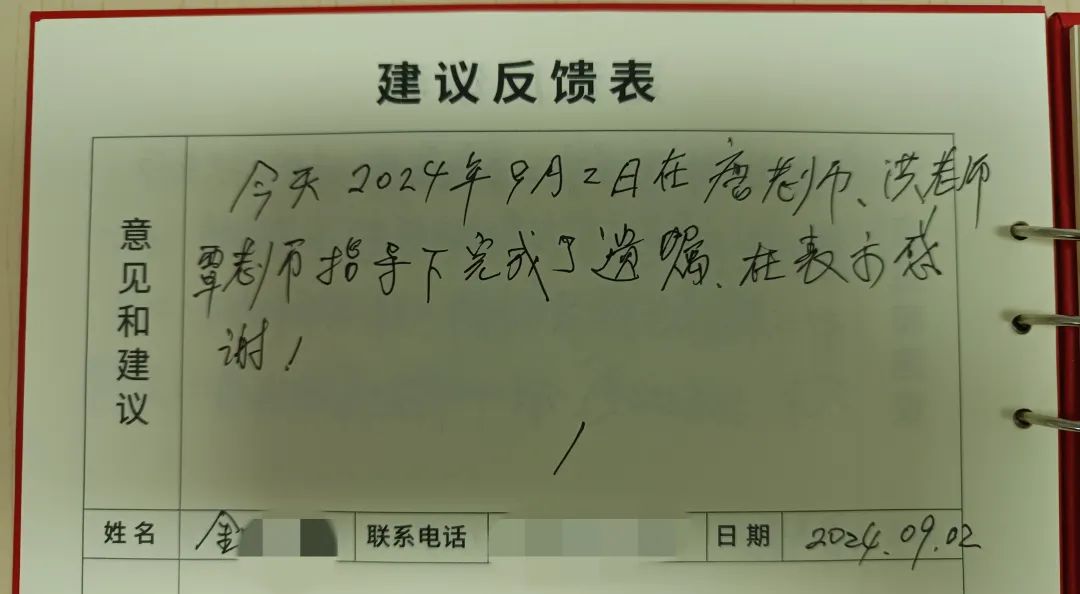 建议反馈表
意见和建议
今天2024年9月2日在唐老师、洪老师
覃老师指导下完成了遗嘱、在表示感
谢！
姓名 金 联系电话 日期 2024.09.02